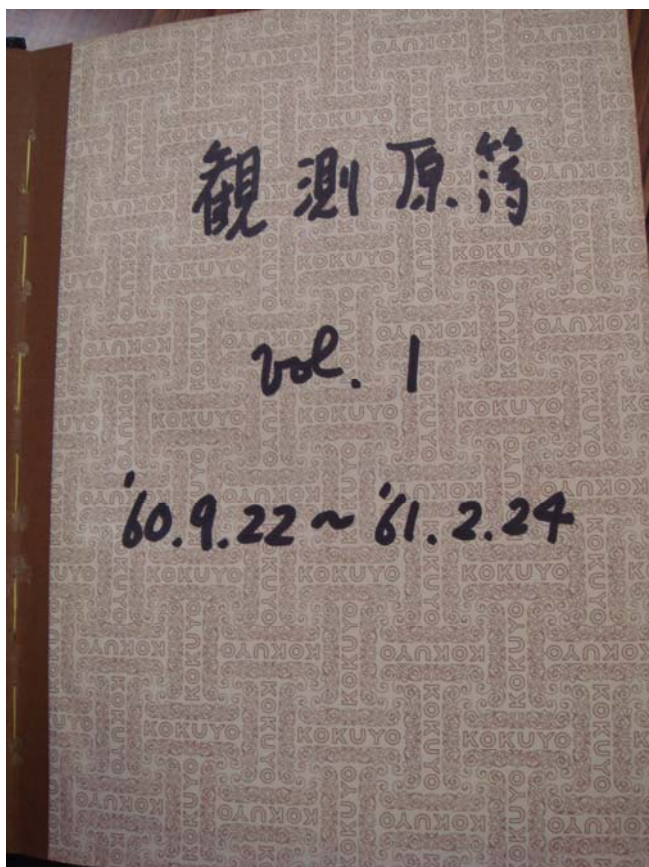 観測原簿
vol. 1
'60.9.22～'61.2.24
KOKUYO